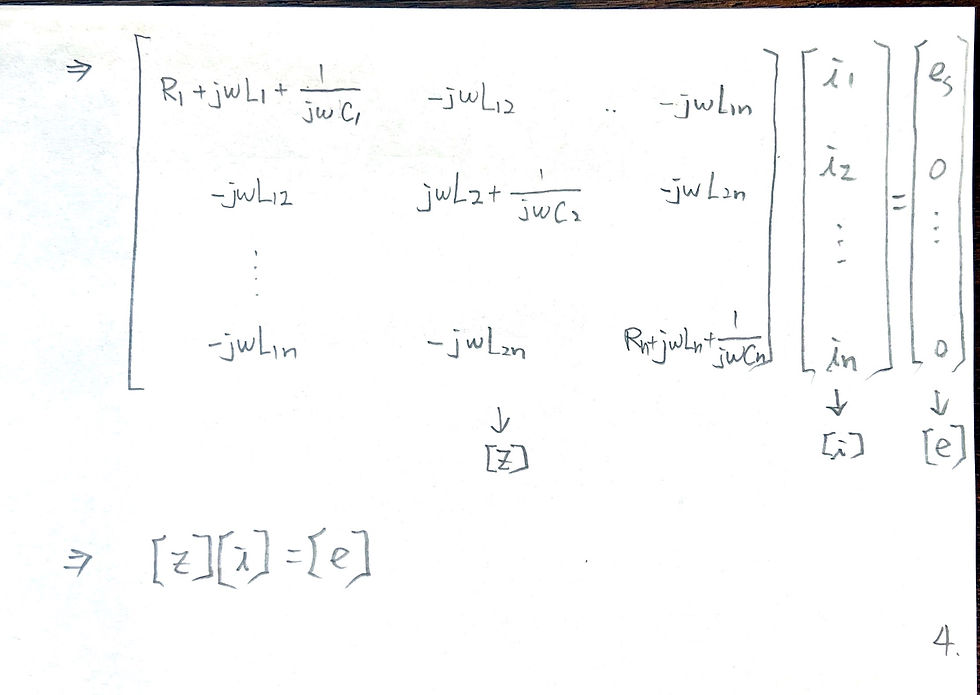 ⇒ [ R₁+jwL₁+1/(jwC₁) -jwL₁₂ .. -jwL₁n ] [ i₁ ] [ eₛ ]
[ -jwL₁₂ jwL₂+1/(jwC₂) -jwL₂n ] [ i₂ ] = [ 0 ]
⋮ ⋮ ⋮
[ -jwL₁n -jwL₂n Rn+jwLn+1/(jwCn) ] [ in ] [ 0 ]
↓ ↓ ↓
[z] [i] [e]
⇒ [z][i]=[e]
4.